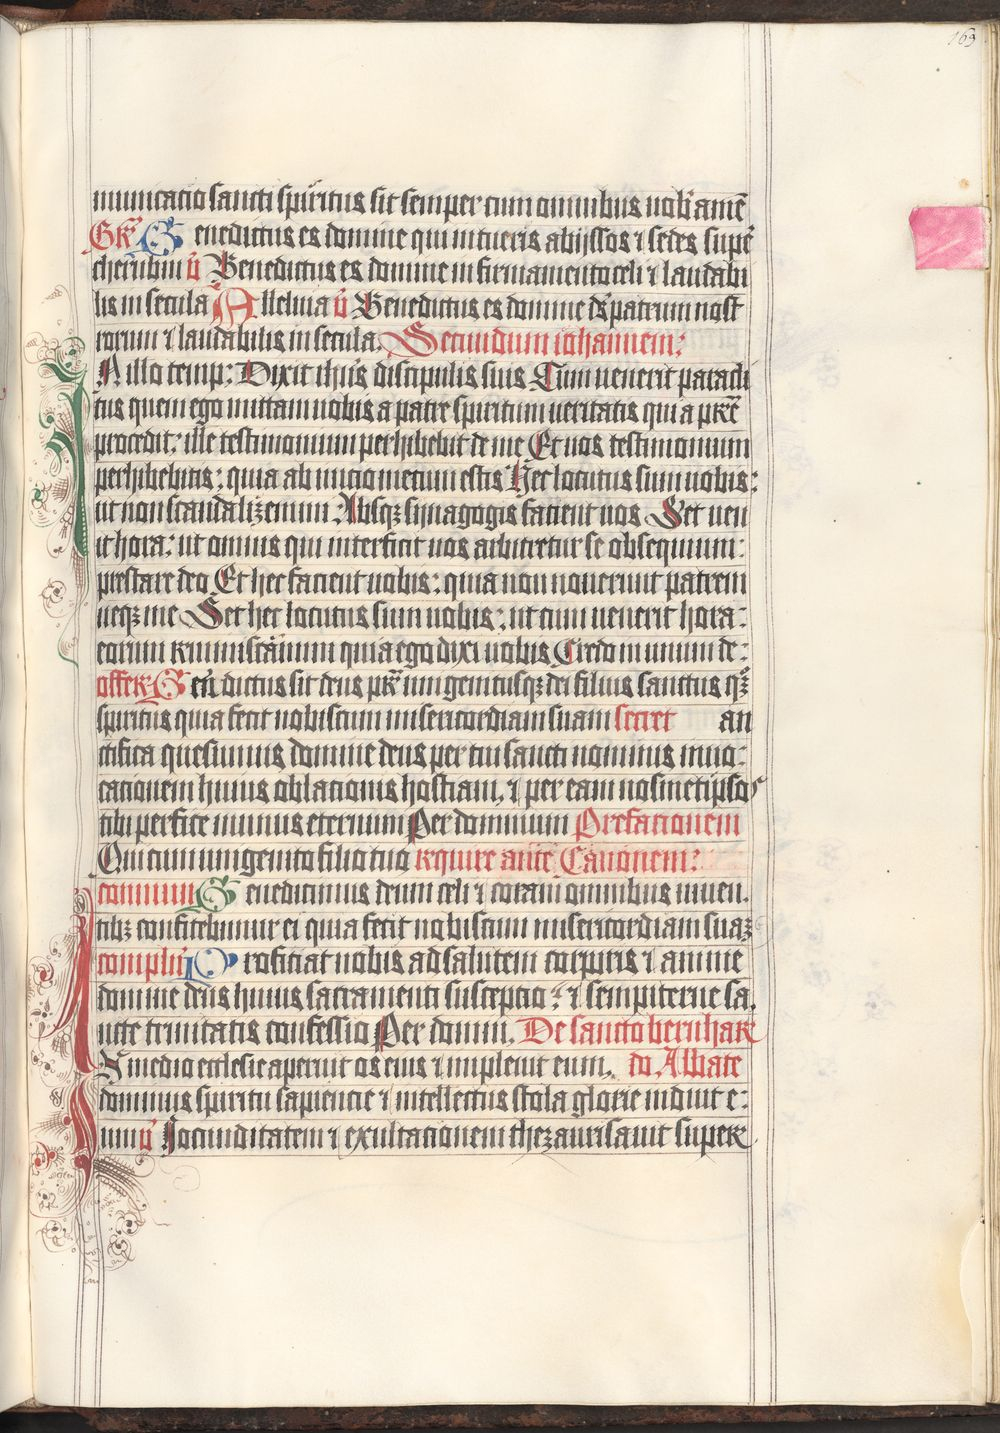 169
municatio sancti spiritus sit semper cum omnibus nobis amē
Gr̄ Benedictus es domine qui intueris abissos ⁊ sedes supē
cherubim v̄ Benedictus es domine in firmamento celi ⁊ laudabi
lis in secula Alleluia v̄ Benedictus es domine ds̄ patrum nost
rorum ⁊ laudabilis in secula. Secundum iohannem:
IN illo temp: Dixit ihūs discipulis suis Cum venerit paracli
tus quem ego mittam vobis a patre spiritum veritatis qui a pr̄e
procedit: ille testimonium perhibebit de me Et vos testimonium
perhibebitis: quia ab inicio mecum estis Hec locutus sum vobis:
ut non scandalizemini Absqꝫ synagogis facient vos Set ven
it hora: ut omnis qui interficit vos arbitretur se obsequium:
prestare deo Et hec facient vobis: quia non noverunt patrem
neqꝫ me Set hec locutus sum vobis: ut cum venerit hora:
eorum reminiscāmini quia ego dixi vobis Credo in unum de:
offer̄ Benedictus sit deus pr̄ unigenitusqꝫ dei filius sanctus qꝫ
spiritus quia fecit nobiscum misericordiam suam secret an
ctifica quesumus domine deus per tui sancti nominis invo:
cationem huius oblationis hostiam, ⁊ per eam nosmetipsos
tibi perfice munus eternum Per dominum Prefacionem
Qui cum unigenito filio tuo require ante Canonem:
commun Benedicimus deum celi ⁊ coram omnibus viven.
tibꝫ confitebimur ei quia fecit nobiscum misericordiam suaꝫ
complēn Proficiat nobis ad salutem corporis ⁊ anime
domine deus huius sacramenti susceptio: ⁊ sempiterne sa.
ncte trinitatis confessio Per domin. De sancto bernhar
IN medio ecclesie aperuit os eius ⁊ implevit eum. do Abbate
dominus spiritu sapiencie ⁊ intellectus stola glorie induit e:
um v̄ Iocunditatem ⁊ exultationem thezaurisavit super